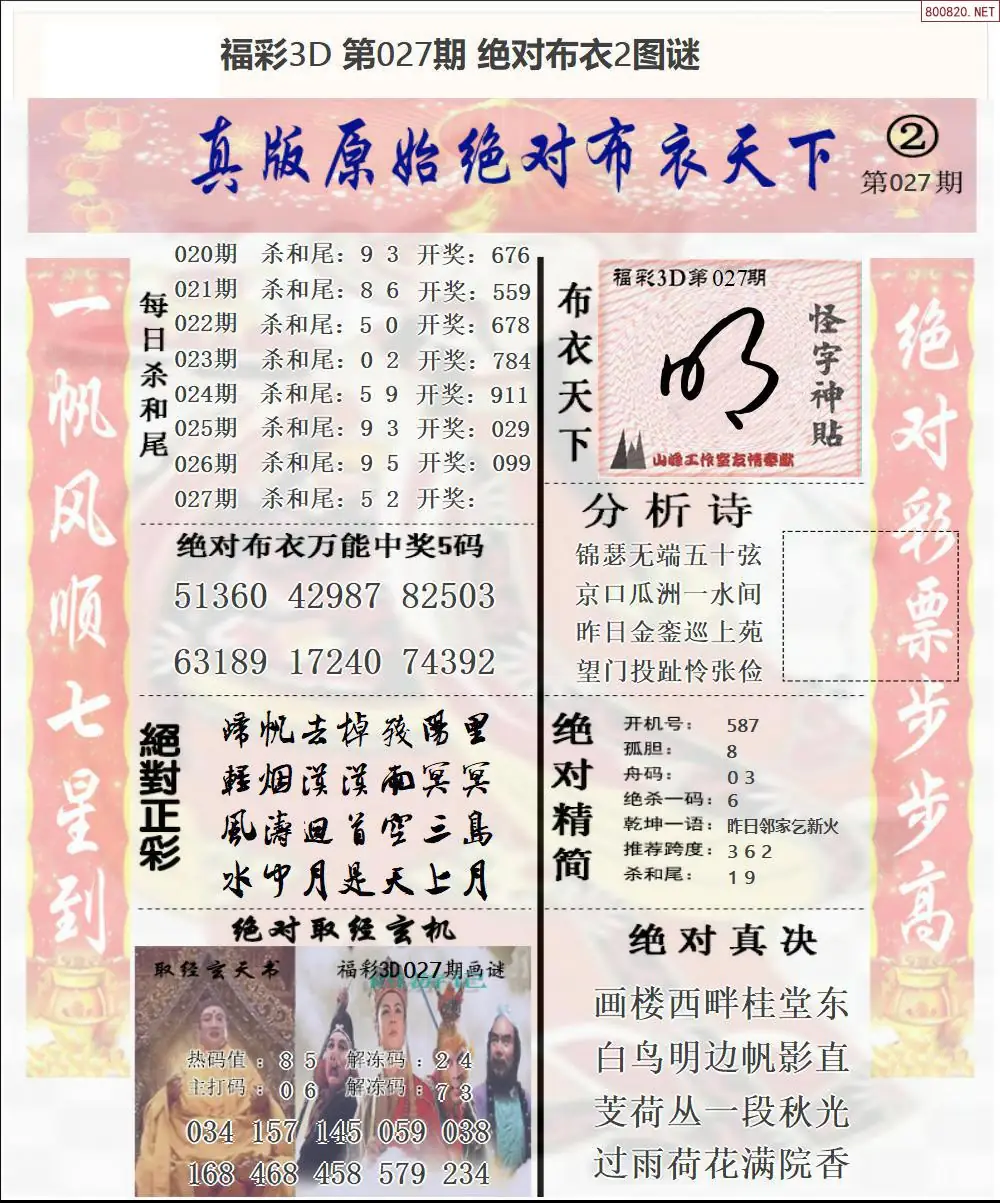 800820.NET
福彩3D 第027期 绝对布衣2图谜
真版原始绝对布衣天下
②
第027期
一帆风顺七星到
每日杀和尾
020期 杀和尾：9 3 开奖：676
021期 杀和尾：8 6 开奖：559
022期 杀和尾：5 0 开奖：678
023期 杀和尾：0 2 开奖：784
024期 杀和尾：5 9 开奖：911
025期 杀和尾：9 3 开奖：029
026期 杀和尾：9 5 开奖：099
027期 杀和尾：5 2 开奖：
绝对布衣万能中奖5码
51360 42987 82503
63189 17240 74392
絕對正彩
歸帆去棹殘陽里
輕烟漠漠雨冥冥
風濤迴首空三島
水中月是天上月
绝对取经玄机
取经玄天书
福彩3D027期画谜
热码值：8 5 解冻码：2 4
主打码：0 6 解冻码：7 3
034 157 145 059 038
168 468 458 579 234
布衣天下
福彩3D第027期
怪字神贴
山峰工作室友情奉献
分析诗
锦瑟无端五十弦
京口瓜洲一水间
昨日金銮巡上苑
望门投趾怜张俭
绝对精简
开机号： 587
孤胆： 8
舟码： 0 3
绝杀一码： 6
乾坤一语： 昨日邻家乞新火
推荐跨度： 3 6 2
杀和尾： 1 9
绝对真决
画楼西畔桂堂东
白鸟明边帆影直
芰荷丛一段秋光
过雨荷花满院香
绝对彩票步步高